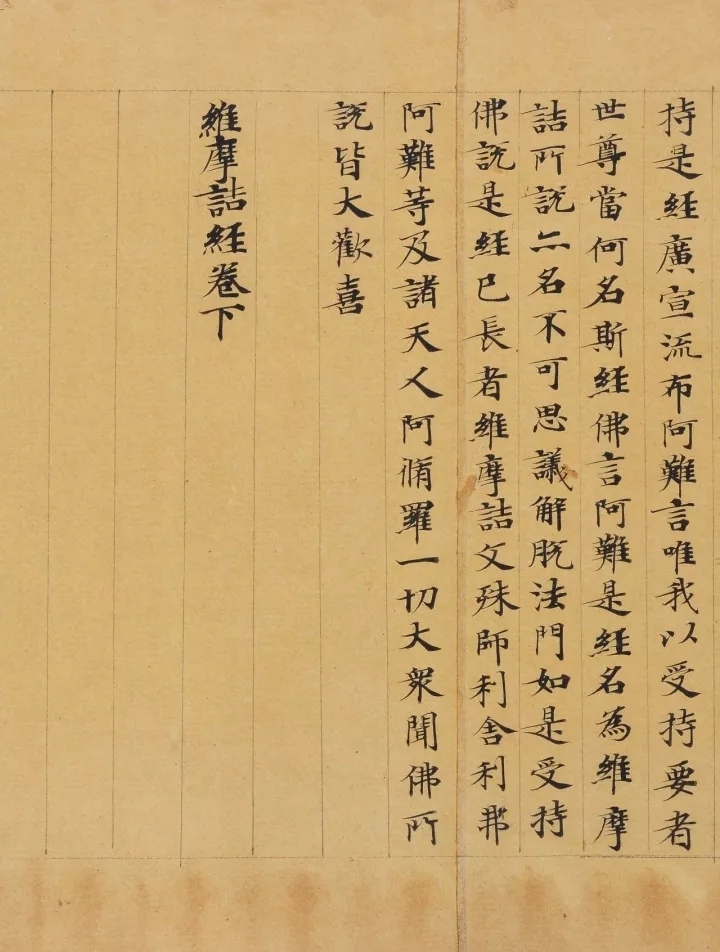 持是經廣宣流布阿難言唯我以受持要者
世尊當何名斯經佛言阿難是經名為維摩
詰所說亦名不可思議解脫法門如是受持
佛說是經已長者維摩詰文殊師利舍利弗
阿難等及諸天人阿脩羅一切大衆聞佛所
說皆大歡喜
維摩詰經卷下